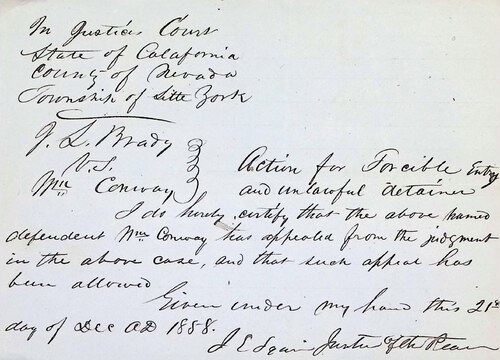 In Justices Court
State of Calafornia
County of Nevada
Township of Little York
J. L. Brady
V.S.
Wm Conway
Action for Forcible Entry
and unlawful detainer
I do hereby certify that the above named
defendent Wm Conway has appealed from the judgment
in the above case, and that such appeal has
been allowed
Given under my hand this 21st
day of Dec AD 1858.
J E Justice of the Peace